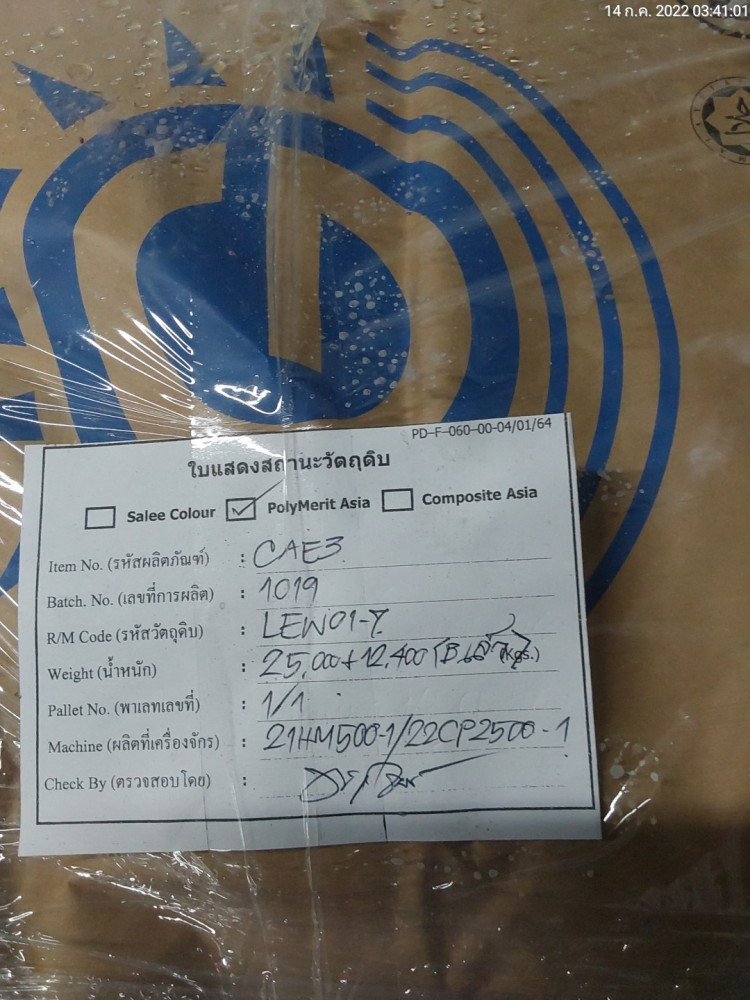 14 ก.ค. 2022 03:41:01
PD-F-060-00-04/01/64
ใบแสดงสถานะวัตถุดิบ
Salee Colour PolyMerit Asia Composite Asia
Item No. (รหัสผลิตภัณฑ์) : CAE3
Batch. No. (เลขที่การผลิต) : 1019
R/M Code (รหัสวัตถุดิบ) : LEW01-Y
Weight (น้ำหนัก) : 25.00+12.400 (Kgs.)
Pallet No. (พาเลทเลขที่) : 1/1
Machine (ผลิตที่เครื่องจักร) : 21HM500-1/22CP2500-1
Check By (ตรวจสอบโดย) :